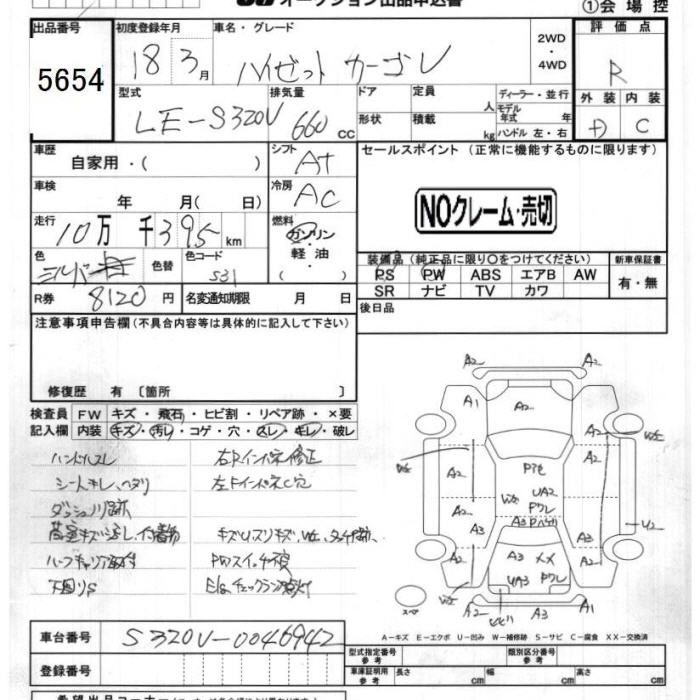 オークション出品申込書
①会場控
出品番号
5654
初度登録年月 車名・グレード
18 3月 ハイゼット カーゴ
2WD
・
4WD
評価点
R
型式 排気量 ドア 定員 人 ディーラー・並行
LE-S320V 660 cc 形状 積載 kg モデル年式 年
ハンドル 左・右
外装 内装
D C
車歴 自家用・( ) シフト AT
車検 年 月( 日) 冷房 AC
走行 10万 千395 km 燃料 ガソリン・軽油・( )
色 シルバー 色替 色コード S31
R券 8120円 名変通知期限 月 日
セールスポイント (正常に機能するものに限ります)
NOクレーム・売切
装備品 (純正品に限り○をつけてください) 新車保証書
PS PW ABS エアB AW 有・無
SR ナビ TV カワ
後日品
注意事項申告欄 (不具合内容等は具体的に記入して下さい)
修復歴 有 〔箇所 〕
検査員 FW キズ・飛石・ヒビ割・リペア跡・×要
記入欄 内装 キズ・汚れ・コゲ・穴・スレ・キレ・破レ
ハンドルスレ 右Fインパネ修正
シートキレ、ヘタリ 左Fインパネ穴
ダッシュノリ跡
PWスイッチ不良
下回りS Eg.チェックランプ点灯
A2 A2
A1 A2 A2
A2 A2 W2
A2 A2
P色
UA2
Pワレ
A3
A3 A3
A2 XX A2
UA3 Pワレ
A2 A3 A1
A-キズ E-エクボ U-凹み W-補修跡 S-サビ C-腐食 XX-交換済
車台番号 S320V-0046942
登録番号
型式指定番号 参考 類別区分番号 参考
車庫証明用 参考 長さ cm 幅 cm 高さ cm